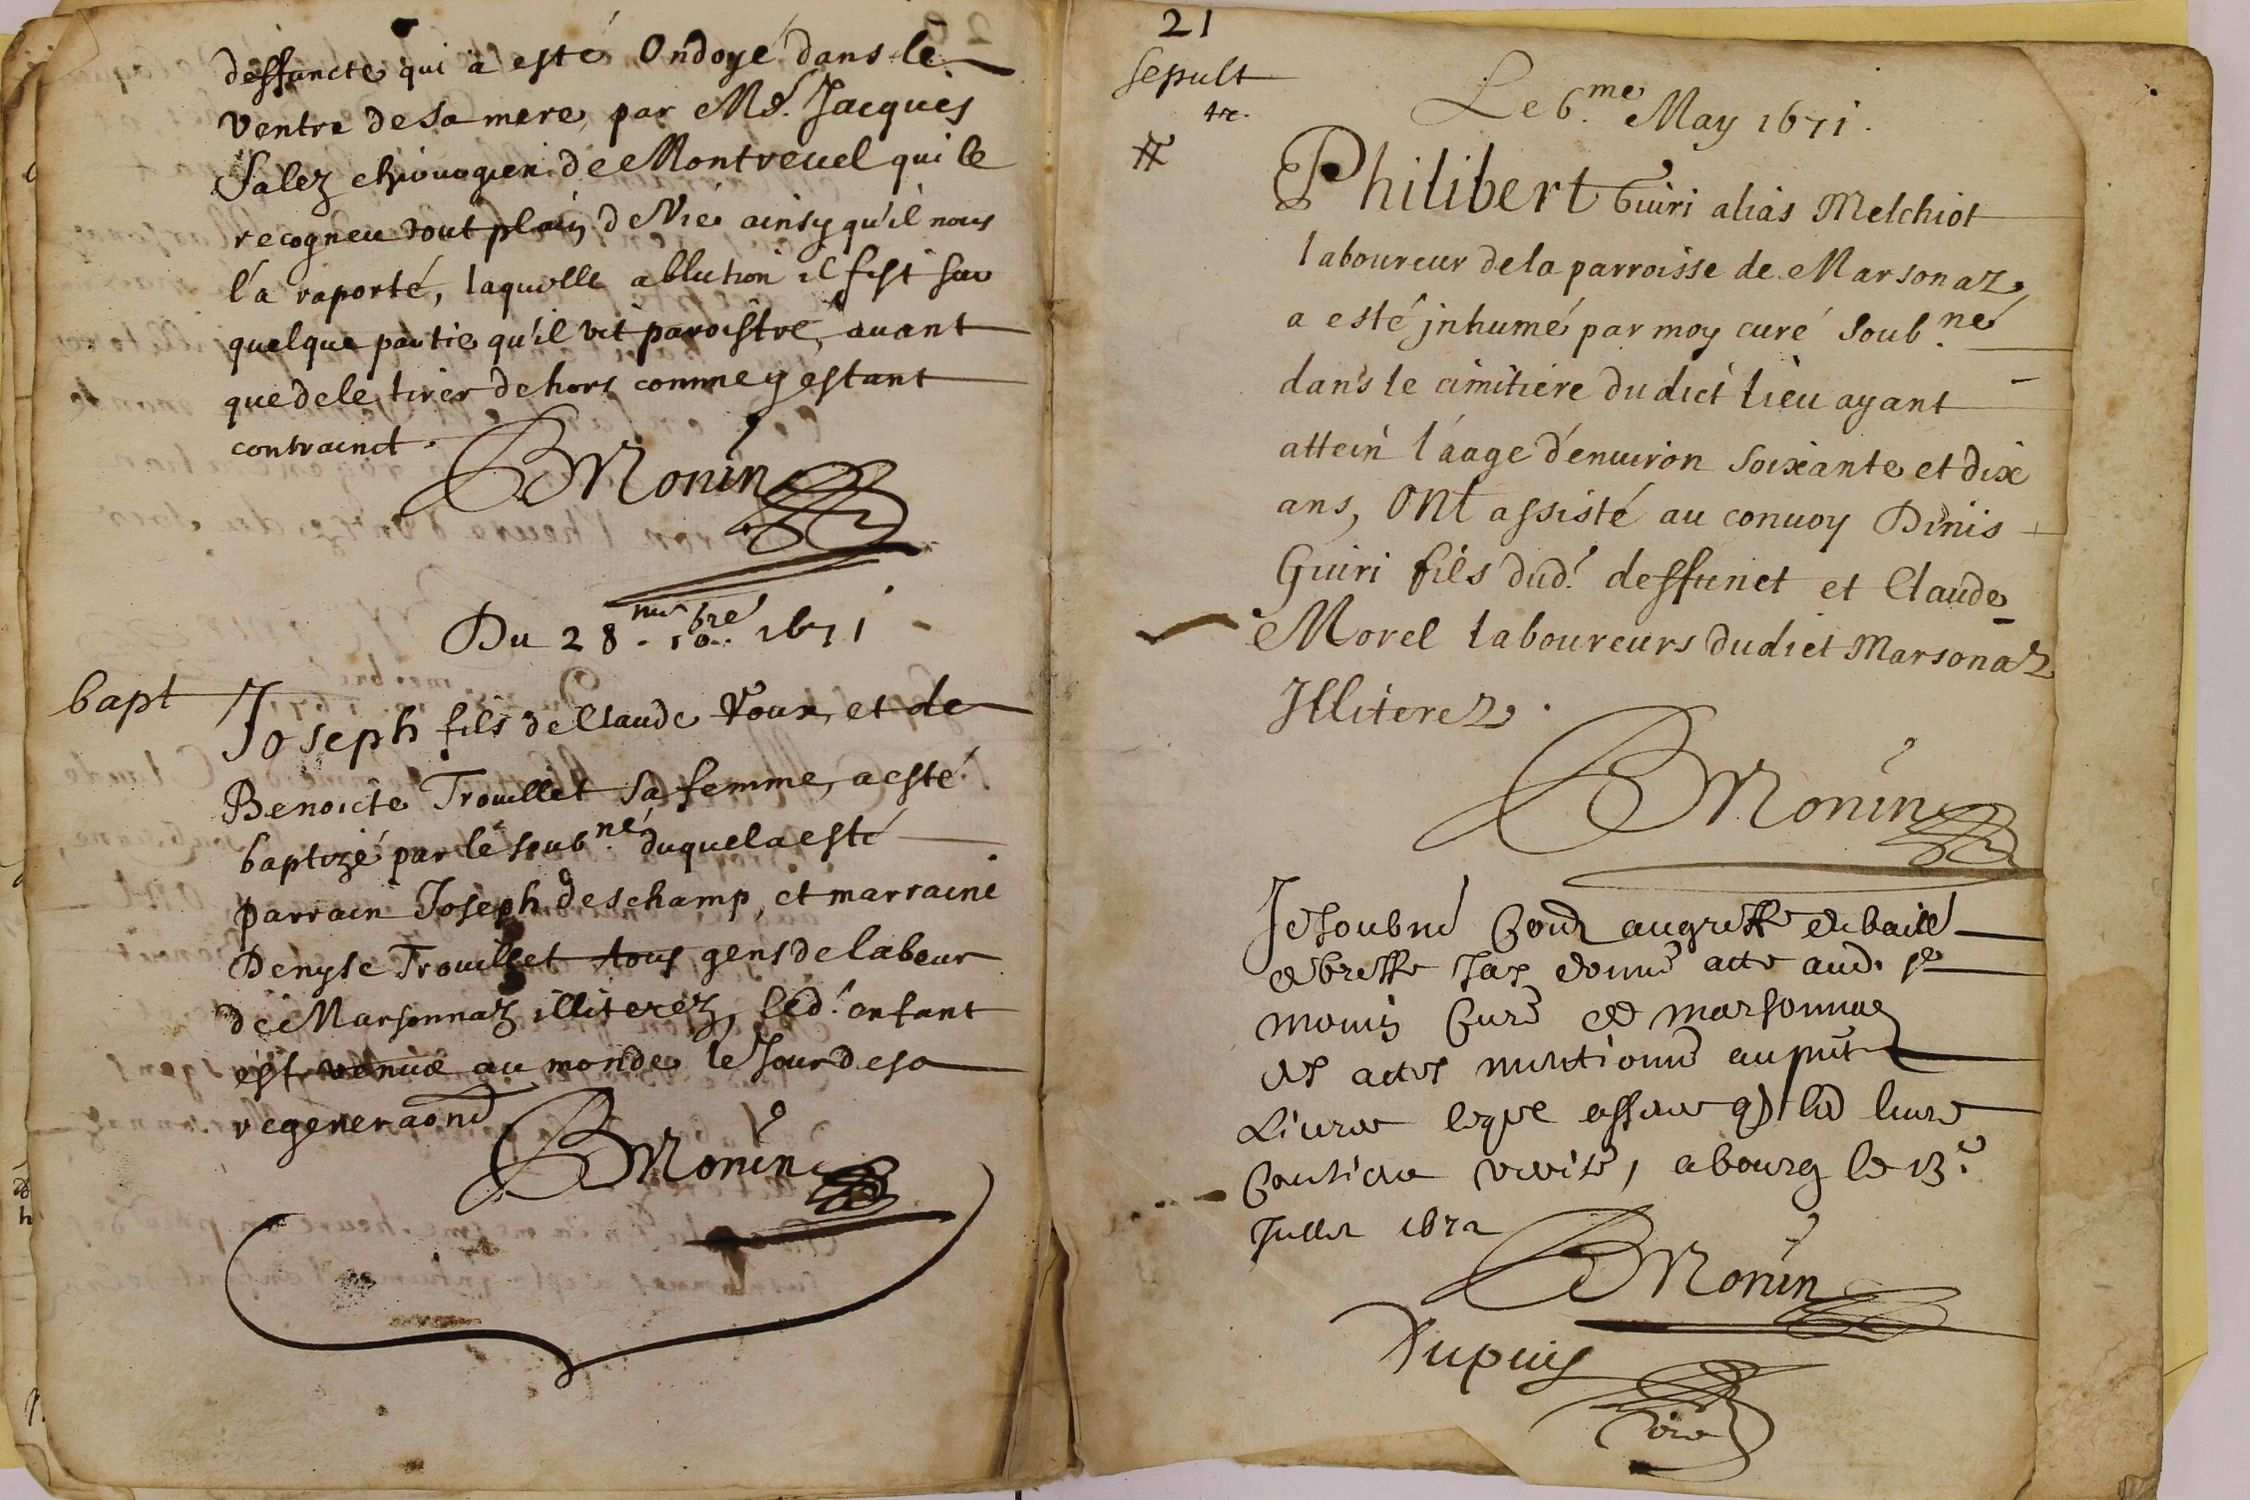 deffuncte qui a esté Ondoyé dans le
ventre de sa mere, par Me. Jacques
Salez chirurgien de Montreuel qui le
recogneu tout plain de Vie ainsy qu'il nous
l'a raporté, laquelle ablution il fist sur
quelque partie qu'il vit paroistre, auant
que de le tirer dehors comme y estant
contrainct.
BMonin
Du 28.me 10.bre 1671
bapt
Joseph fils de Claude Roux, et de
Benoicte Trouillet sa femme, a esté
baptizé par le soub.né duquel a esté
parrain Joseph deschamp, et marraine
Denyse Trouillet tous gens de labeur
de Marsonnaz illiterez, led.' enfant
est venue au monde le Jour de sa
regeneraõn
BMonin
21
sepult
Le 6.me May 1671.
Philibert Guiri alias Melchiot
laboureur de la parroisse de Marsonaz,
a esté jnhumé par moy curé soub.né
dans le cimitiere dudict lieu ayant
attein l'áage d'enuiron soixante et dix
ans, ONt assisté au conuoy Dinis
Guiri fils dud.' deffunct et Claude
Morel laboureurs dudict Marsonaz
Jlliterez.
BMonin
Je soubné au greffe de
de donné acte aud. sr
monin Curé de marsonnaz
des actes mentionné au pnt
Liure lequel led liure
, a bourg le 13.e
Jullet 1672
BMonin
Dupuis